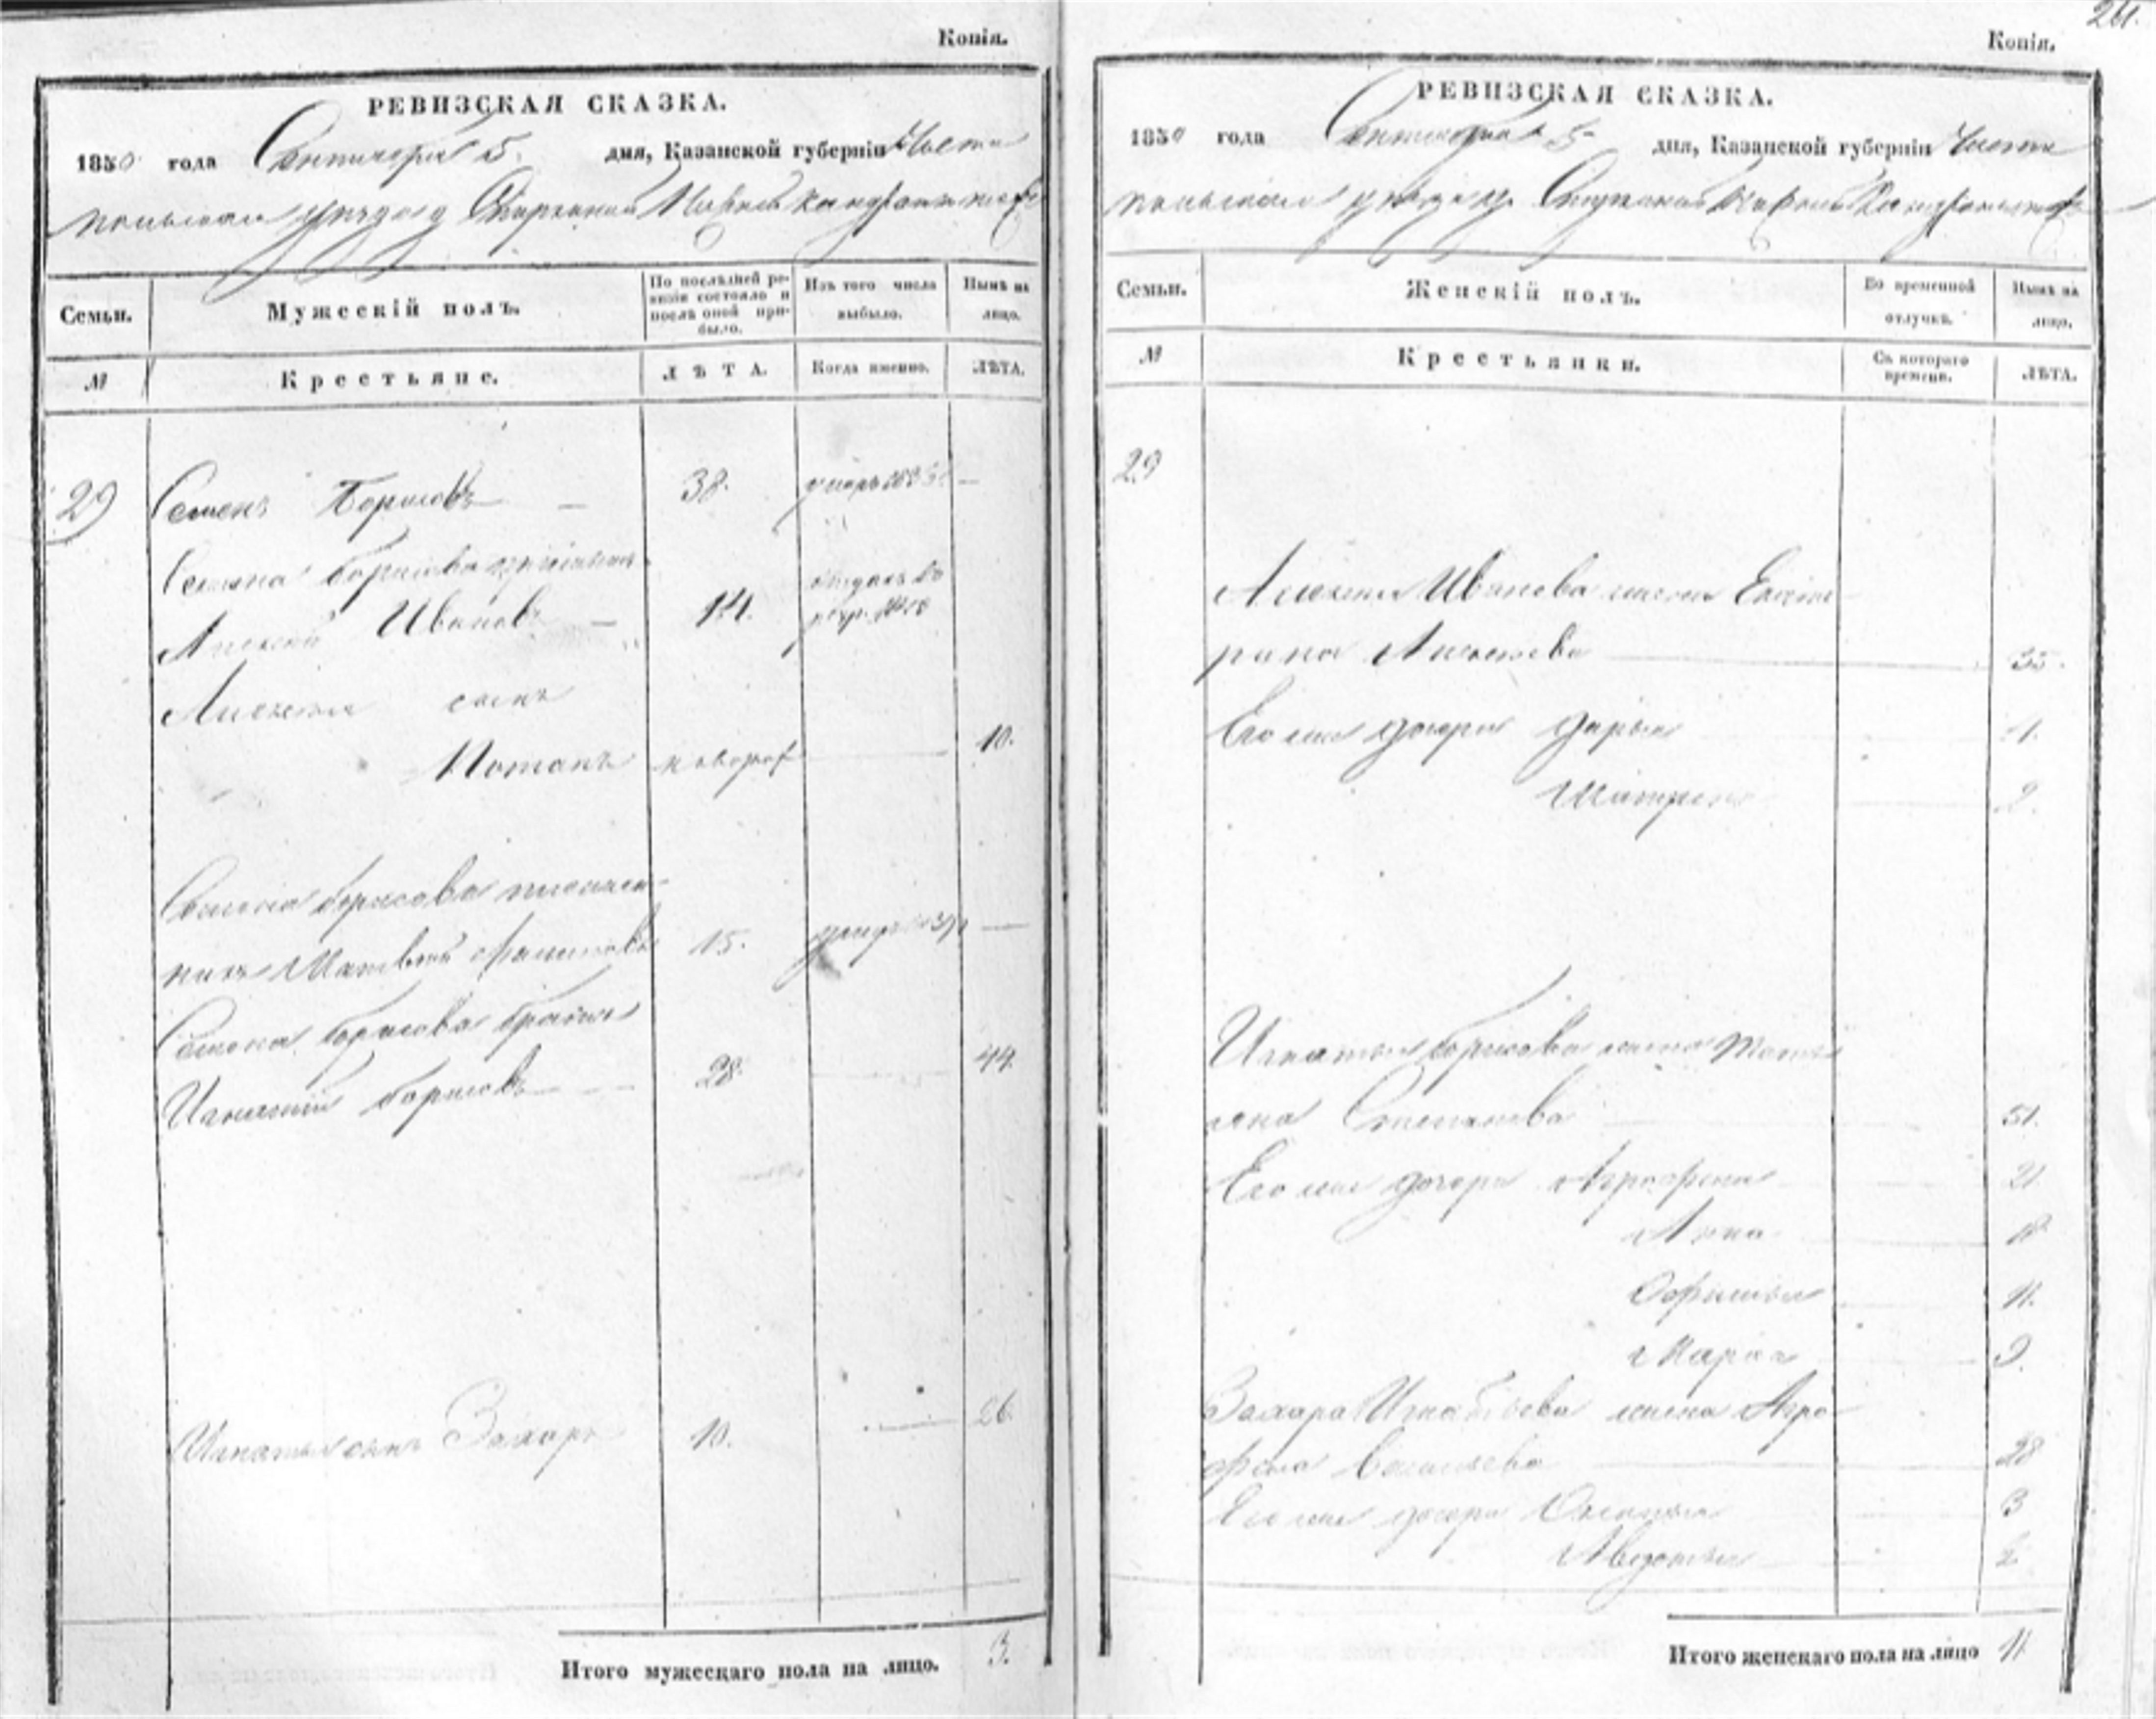 Копія.
РЕВИЗСКАЯ СКАЗКА.
1850 года Сентября 5 дня, Казанской губерніи Чисто
польскаго уѣзда
Семьи. Мужескій полъ. По послѣдней ре-
визіи состояло и
послѣ оной при-
было. Изъ того числа
выбыло. Нынѣ на
лицо.
№ Крестьяне. ЛѢТА. Когда именно. ЛѢТА.
29 Семенъ Борисовъ — 38. —
Семена Борисова
Алексей Ивановъ — 14. отданъ въ
рекр.
Алексея сынъ
Потапъ новорож 10.
Семена Борисова племян-
никъ Матвей 15. —
Семена Борисова братья
Игнатий Борисовъ 28. 44.
Игнатья сынъ Захаръ 10. 26
Итого мужескаго пола на лицо. 3.
24.
Копія.
РЕВИЗСКАЯ СКАЗКА.
1850 года Сентября 5 дня, Казанской губерніи Чисто
польскаго уѣзда
Семьи. Женскій полъ. Во временной
отлучкѣ. Нынѣ на
лицо.
№ Крестьянки. Съ котораго
времени. ЛѢТА.
29
Алексея Иванова жена Екате
рина Алексеева 35.
Его же дочери Дарья 11.
Матрена 2.
Игнатья Борисова жена Тать
яна Степанова 51.
Его же дочери Аграфена 21
Анна 18
Офимья 11.
Марья 9.
Захара Игнатьева жена Агра
фена Васильева 28
Его же дочери 3
Авдотья 2
Итого женскаго пола на лицо 11